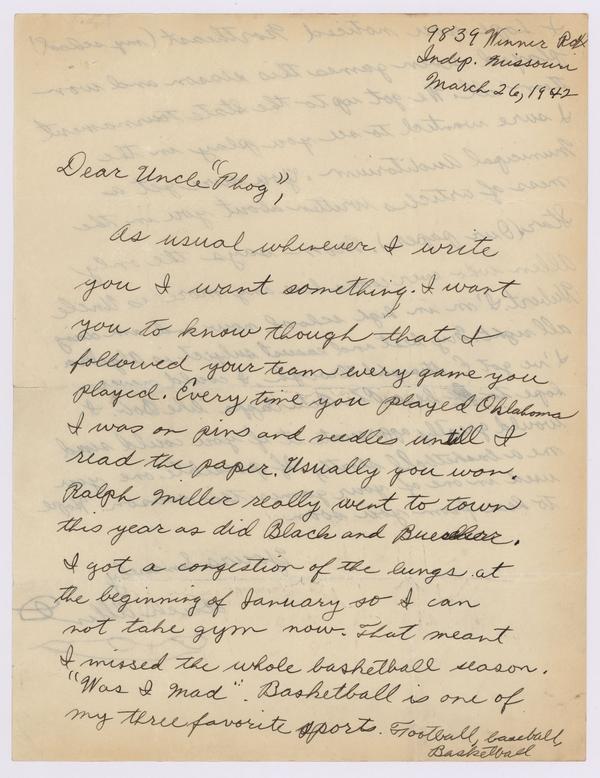 9839 Winner Rd
Indep. Missouri
March 26, 1942
Dear Uncle "Phog",
As usual whenever I write
you I want something. I want
you to know though that I
followed your team every game you
played. Every time you played Oklahoma
I was on pins and needles untill I
read the paper. Usually you won.
Ralph Miller really went to town
this year as did Black and Buescher.
I got a congestion of the lungs at
the beginning of January so I can
not take gym now. That meant
I missed the whole basketball season.
"Was I mad". Basketball is one of
my three favorite sports. Football, baseball,
Basketball